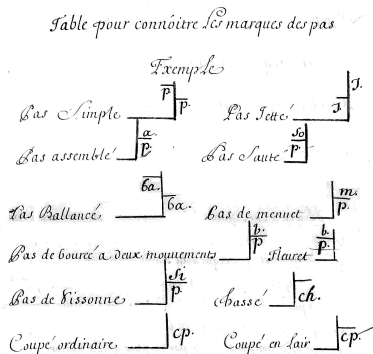 Table pour connoitre Les marques des pas
Exemple
Pas Simple p p Pas Jetté J J.
Pas assemblé a. p. Pas Sauté so p.
Pas Ballancé ba. ba. Pas de menuet m. p.
Pas de bourcé a deux mouvements b. p Fleuret b. p.
Pas de Sissonne si p. chassé ch.
Coupé ordinaire cp. Coupé en lair cp.